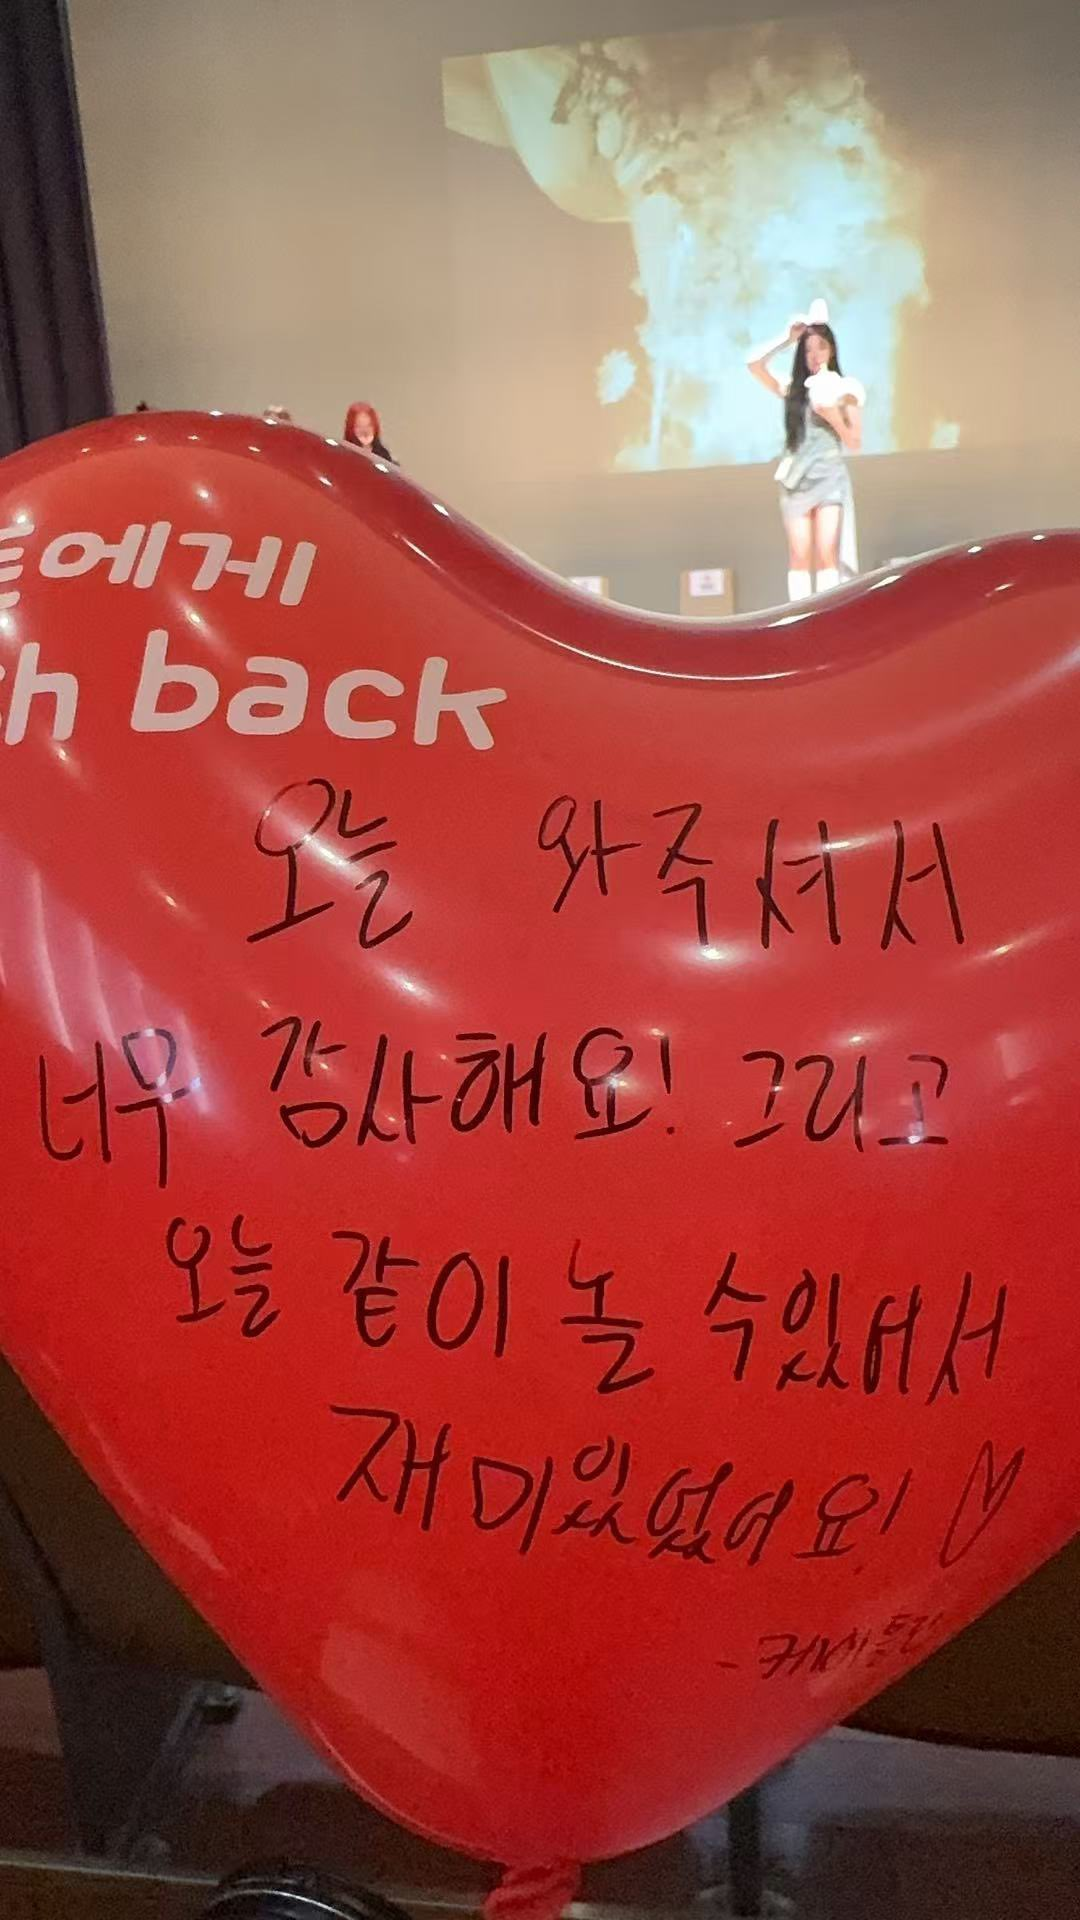 에게
back
오늘 와주셔서
너무 감사해요! 그리고
오늘 같이 놀 수있어서
재미있었어요! ♡